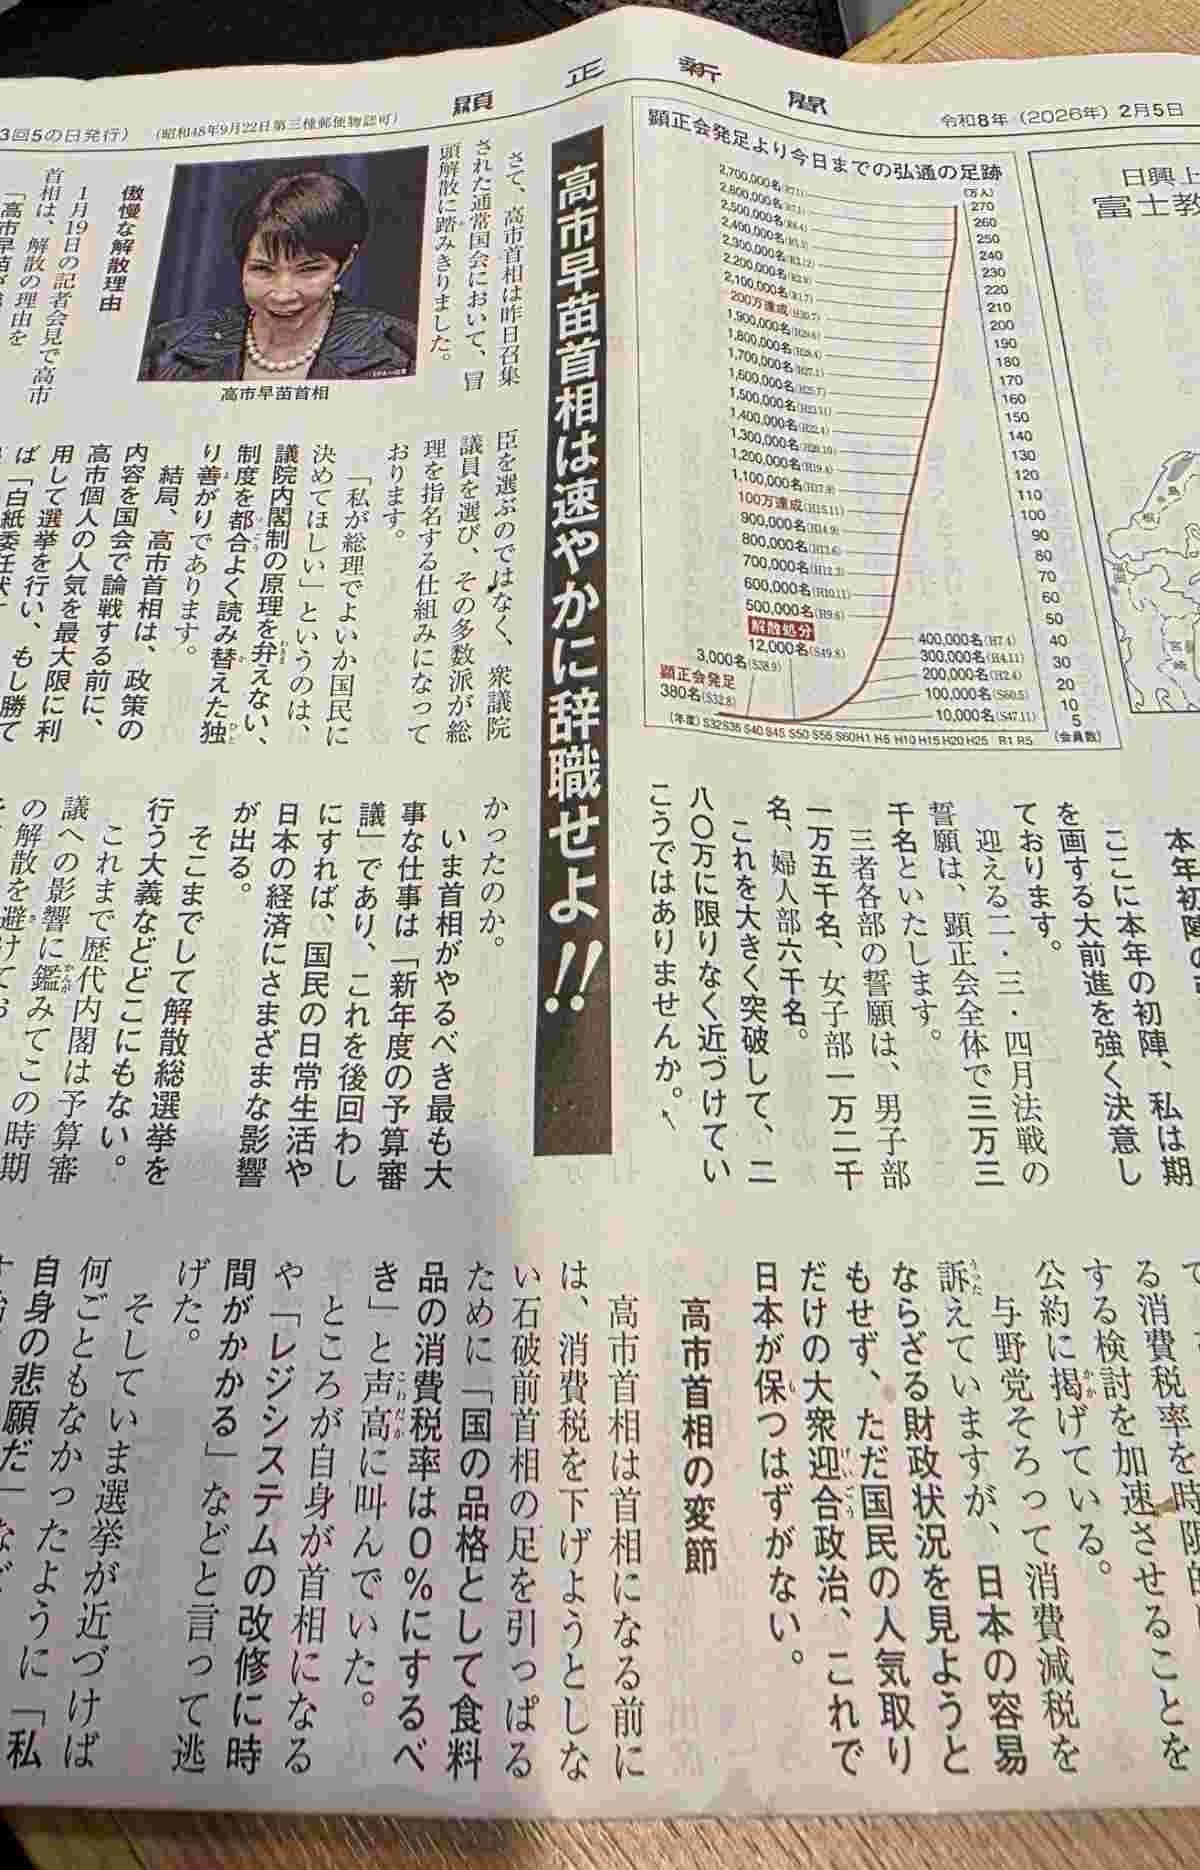 顕正新聞
令和8年（2026年）2月5日
3回5の日発行）
（昭和48年9月22日第三種郵便物認可）
日興上
富士教
顕正会発足より今日までの弘通の足跡
（万人）
2,700,000名
2,600,000名
2,500,000名
2,400,000名
2,300,000名
2,200,000名
2,100,000名(R1.7)
200万達成(H30.7)
1,900,000名
1,800,000名(H28.4)
1,700,000名(H27.1)
1,600,000名(H25.7)
1,500,000名(H23.11)
1,400,000名(H22.4)
1,300,000名(H20.10)
1,200,000名(H19.4)
1,100,000名(H17.9)
100万達成(H15.11)
900,000名(H14.9)
800,000名(H13.6)
700,000名(H12.3)
600,000名(H10.11)
500,000名(H9.6)
解散処分
12,000名(S49.8)
3,000名(S38.9)
顕正会発足
380名(S32.8)
400,000名(H7.4)
300,000名(H4.11)
200,000名(H2.4)
100,000名(S60.5)
10,000名(S47.11)
270
260
250
240
230
220
210
200
190
180
170
160
150
140
130
120
110
100
90
80
70
60
50
40
30
20
10
5
（会員数）
（年度）S32 S35 S40 S45 S50 S55 S60 H1 H5 H10 H15 H20 H25 R1 R5
本年初陣の
ここに本年の初陣、私は期
を画する大前進を強く決意し
ております。
迎える二・三・四月法戦の
誓願は、顕正会全体で三万三
千名といたします。
三者各部の誓願は、男子部
一万五千名、女子部一万二千
名、婦人部六千名。
これを大きく突破して、二
八〇万に限りなく近づけてい
こうではありませんか。
高市早苗首相は速やかに辞職せよ!!
さて、高市首相は昨日召集
された通常国会において、冒
頭解散に踏みきりました。
高市早苗首相
傲慢な解散理由
1月19日の記者会見で高市
首相は、解散の理由を
「高市早苗が
臣を選ぶのではなく、衆議院
議員を選び、その多数派が総
理を指名する仕組みになって
おります。
「私が総理でよいか国民に
決めてほしい」というのは、
議院内閣制の原理を弁えない、
制度を都合よく読み替えた独
り善がりであります。
結局、高市首相は、政策の
内容を国会で論戦する前に、
高市個人の人気を最大限に利
用して選挙を行い、もし勝て
ば「白紙委任状」
かったのか。
いま首相がやるべき最も大
事な仕事は「新年度の予算審
議」であり、これを後回わし
にすれば、国民の日常生活や
日本の経済にさまざまな影響
が出る。
そこまでして解散総選挙を
行う大義などどこにもない。
これまで歴代内閣は予算審
議への影響に鑑みてこの時期
の解散を避けてお
る消費税率を時限的
する検討を加速させることを
公約に掲げている。
与野党そろって消費減税を
訴えていますが、日本の容易
ならざる財政状況を見ようと
もせず、ただ国民の人気取り
だけの大衆迎合政治、これで
日本が保つはずがない。
高市首相の変節
高市首相は首相になる前に
は、消費税を下げようとしな
い石破前首相の足を引っぱる
ために「国の品格として食料
品の消費税率は0%にするべ
き」と声高に叫んでいた。
ところが自身が首相になる
や「レジシステムの改修に時
間がかかる」などと言って逃
げた。
そしていま選挙が近づけば
何ごともなかったように「私
自身の悲願だ」など